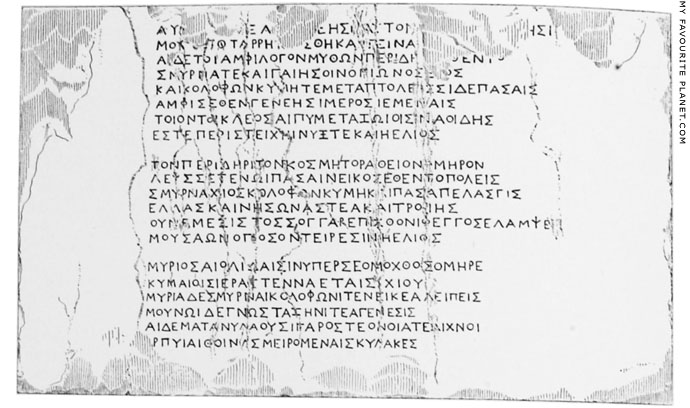 ΑΙΔΕΤΟΙΑΜΦΙΛΟΓΟΝΜΥΘΩΝΠΕΡΙΔΗ
ΣΜΥΡΝΑΤΕΚΑΙΓΑΙΗΣΟΙΝΟΠΙΩΝΟΣ
ΚΑΙΚΟΛΟΦΩΝΚΥΜΗΤΕΜΕΤΑΠΤΟΛΕΕΣΣΙΔΕΠΑΣΑΙΣ
ΑΜΦΙΣΕΘΕΝΓΕΝΕΗΣΙΜΕΡΟΣΙΕΜΕΝΑΙΣ
ΤΟΙΟΝΤΟΙΚΛΕΟΣΑΙΠΥΜΕΤΑΖΩΟΙΣΙΝΑΟΙΔΗΣ
ΕΣΤΕΠΕΡΙΣΤΕΙΧΗΙΝΥΞΤΕΚΑΙΗΕΛΙΟΣ
ΤΟΝΠΕΡΙΔΗΡΙΤΟΝΚΟΣΜΗΤΟΡΑΘΕΙΟΝΟΜΗΡΟΝ
ΛΕΥΣΣΕΤΕΝΩΙΠΑΣΑΙΝΕΙΚΟΣΕΘΕΝΤΟΠΟΛΕΙΣ
ΣΜΥΡΝΑΧΙΟΣΚΟΛΟΦΩΝΚΥΜΗΚΑΙΠΑΣΑΠΕΛΑΣΓΙΣ
ΕΛΛΑΣΚΑΙΝΗΣΩΝΑΣΤΕΑΚΑΙΤΡΟΙΗΣ
ΟΥΝΕΜΕΣΙΣΤΟΣΣΟΓΓΑΡΕΠΙΧΘΟΝΙΦΕΓΓΟΣΕΛΑΜΨΕΝ
ΜΟΥΣΑΩΝΟΠΟΣΟΝΤΕΙΡΕΣΙΝΗΕΛΙΟΣ
ΜΥΡΙΟΣΑΙΟΛΙΔΑΙΣΙΝΥΠΕΡΣΕΟΜΟΧΘΟΣΟΜΗΡΕ
ΚΥΜΑΙΟΙΣΙΕΡΑΤΕΝΝΑΕΤΑΙΣΧΙΟΥ
ΜΥΡΙΑΔΕΣΜΥΡΝΑΙΚΟΛΟΦΩΝΙΤΕΝΕΙΚΕΑΛΕΙΠΕΙΣ
ΜΟΥΝΩΙΔΕΓΝΩΣΤΑΖΗΝΙΤΕΑΓΕΝΕΣΙΣ
ΑΙΔΕΜΑΤΑΝΥΛΑΟΥΣΙΠΑΡΟΣΤΕΟΝΟΙΑΤΕΛΙΧΝΟΙ
ΡΠΥΙΑΙΘΟΙΝΑΣΜΕΙΡΟΜΕΝΑΙΣΚΥΛΑΚΕΣ
MY FAVOURITE PLANET.COM